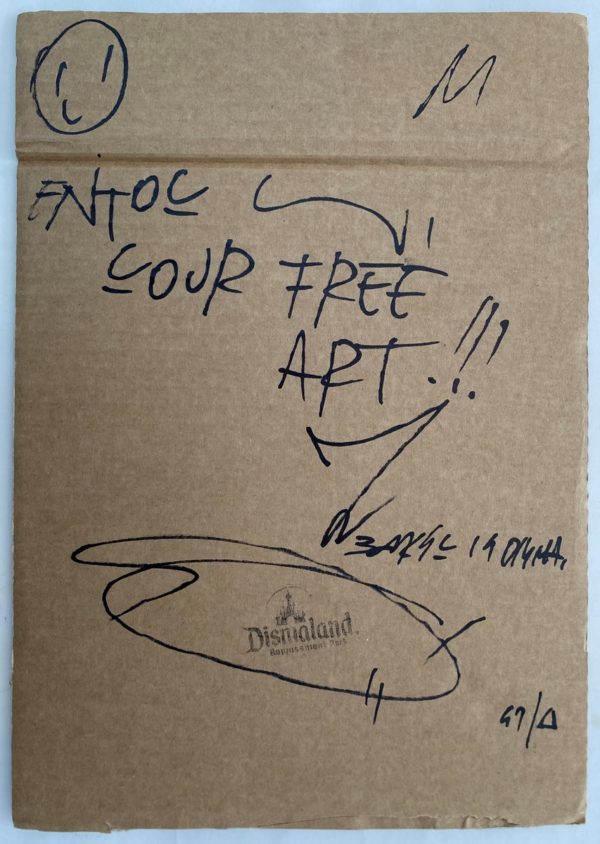 M
ENJOY
YOUR FREE
ART...!!!
Dismaland.
Bemusement Park